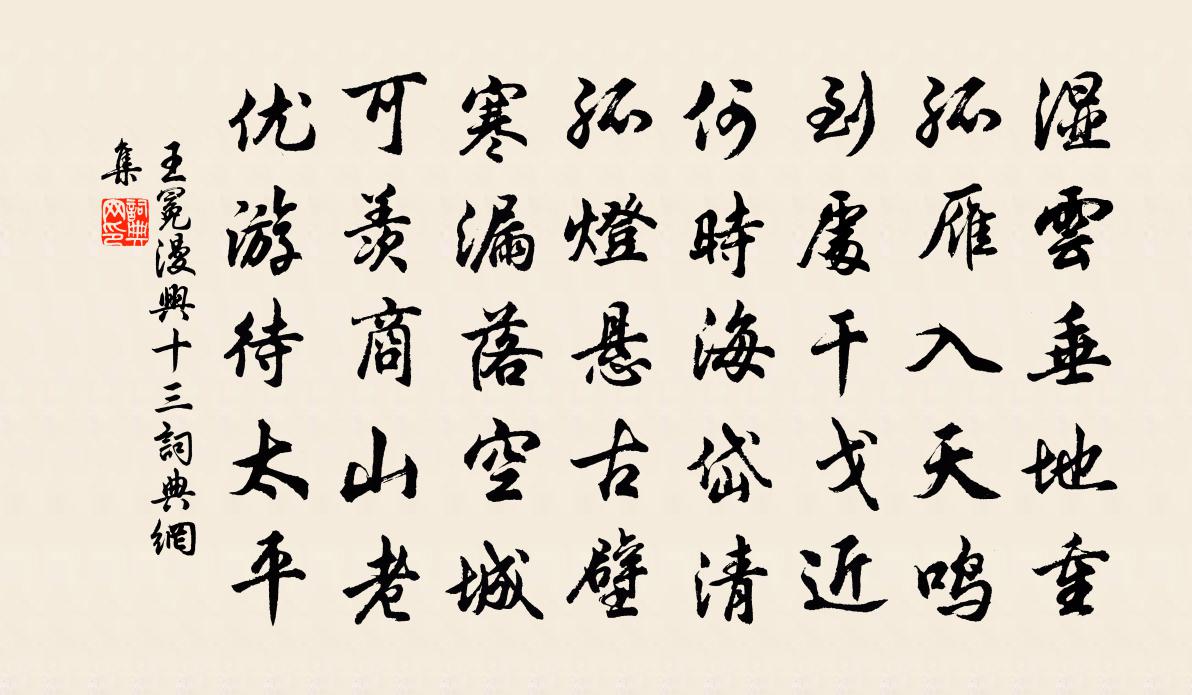 湿雲垂地重
孤雁入天鸣
到處干戈近
何時海岱清
孤燈悬古壁
寒漏落空城
可羡商山老
优游待太平
王冕漫興十三詞典網
集
詞典
网印